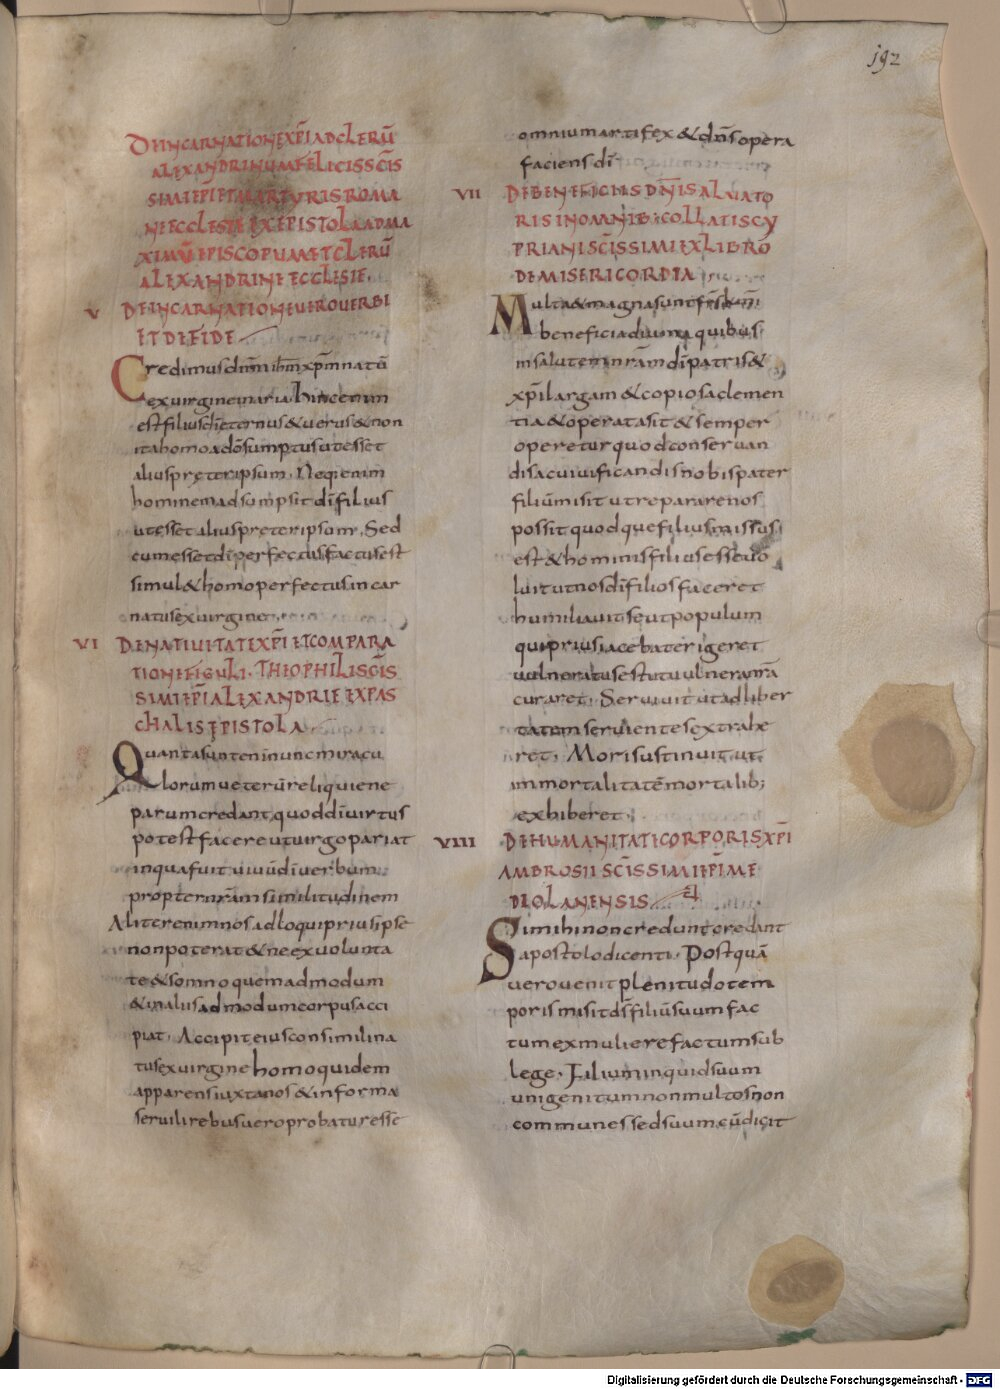 192
DEINCARNATIONEXP̄IADCLERŪ
ALEXANDRINUMFELICISSC̄IS
SIMIEP̄IETMARTYRISROMA
NEECCLESIEEXEPISTOLAADMA
XIMŪEPISCOPUMETCLERŪ
ALEXANDRINEECCLESIE.
V DEINCARNATIONEUEROUERBI
ETDEFIDE
Credimusdn̄mih̄mxp̄mnatū
exuirginemaria. hincenim
estfiliusdīeternus&uerus&non
itahomoadsumptusutesset
aliuspreteripsum. Neqenim
hominemadsumpsit dīfilius
utessetaliuspreteripsum. Sed
cumessetdīperfectusfactusest
simul&homoperfectusincar
natusexuirgine
VI DENATIUITATEXP̄I ETCOMPARA
TIONEFIGULI. THEOPHILISC̄IS
SIMIEP̄IALEXANDRIEEXPAS
CHALISEPISTOLA
Quantasunteninuncmiracu
lorumueterūreliquiene
parumcredant quoddīuirtus
potestfacereutuirgopariat
inquafuit uiuūdīuerbum
propternr̄amsimilitudinem
Aliterenimnosadloquipriusipse
nonpoterat&neexuolunta
te&somno quemadmodum
&inaliusadmodumcorpusacci
piat. Accipiteiusconsimilina
tusexuirginehomoquidem
apparensiuxtanos&informa
seruilirebusueroprobaturesse
omniumartifex&dn̄sopera
faciensdī
VII DEBENEFICIISDN̄ISALUATO
RISINOMNIB:COLLATISCY
PRIANISC̄ISSIMIEXLIBRO
DEMISERICORDIA
Multa&magnasuntfr̄s
beneficiadiuinaquibus
insalutemnr̄amdīpatris&
xp̄ilargam&copiosaclemen
tia&operatasit&semper
opereturquodconseruan
disacuiuificandisnobispater
filiūmisitutrepararenos
possit quodquefiliusmissus
est&hominisfiliusesseuo
luitutnosdīfiliosfaceret
humiliauitseutpopulum
quipriusiacebaterigeret
uulneratusestutuulneranr̄a
curaret. Seruiuitutadliber
tatemseruientesextrahe
ret. Morisustinuit ut
inmortalitatēmortalib;
exhiberet.
VIII DEHUMANITATECORPORISXP̄I
AMBROSIISC̄ISSIMIEP̄IME
DIOLANENSIS
Simihinoncreduntcredant
apostolodicenti. Postquā
uerouenitplenitudotem
porismisitds̄filiūsuumfac
tumexmulierefactumsub
lege. Filiuminquidsuum
unigenitumnonmultosnon
communessedsuumcūdicit
Digitalisierung gefördert durch die Deutsche Forschungsgemeinschaft - DFG